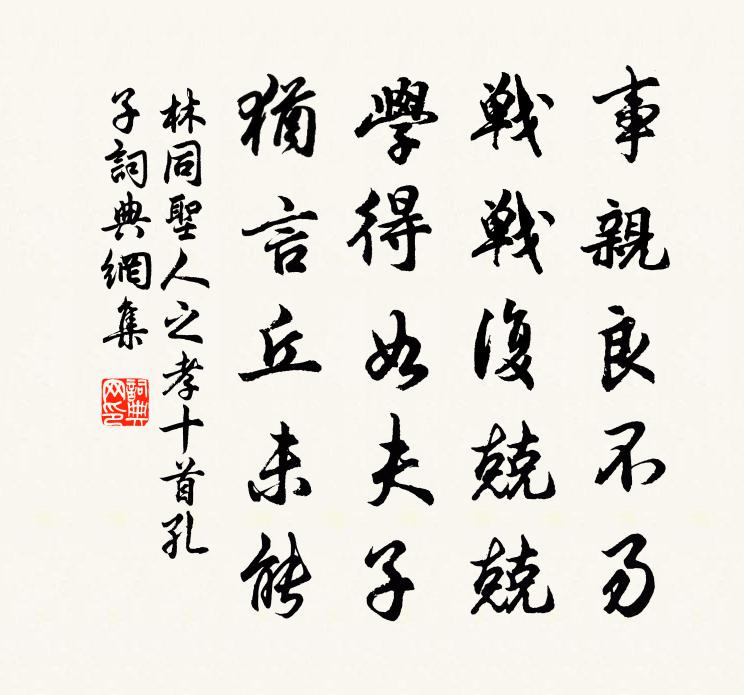 事親良不易
戰戰復兢兢
學得如夫子
猶言丘未能
林同聖人之孝十首孔
子詞典網集
詞典网印